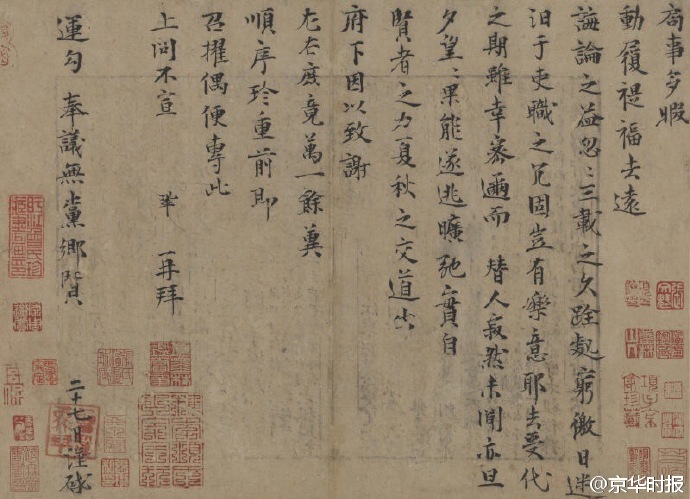 局事多暇
動履禔福去遠
誨論之益忽〻三載之久跧處窮徼日迷
汩于吏職之冗固豈有樂意耶去受代
之期雖幸密邇而替人寂然未聞亦旦
夕望〻果能遂逃曠弛實自
賢者之力夏秋之交道出
府下因以致謝
左右庶竟萬一餘冀
順序珍重前即
召擢偶便專此
上問不宣 鞏 再拜
運勾 奉議無黨鄉賢
二十七日謹啟
@京华时报